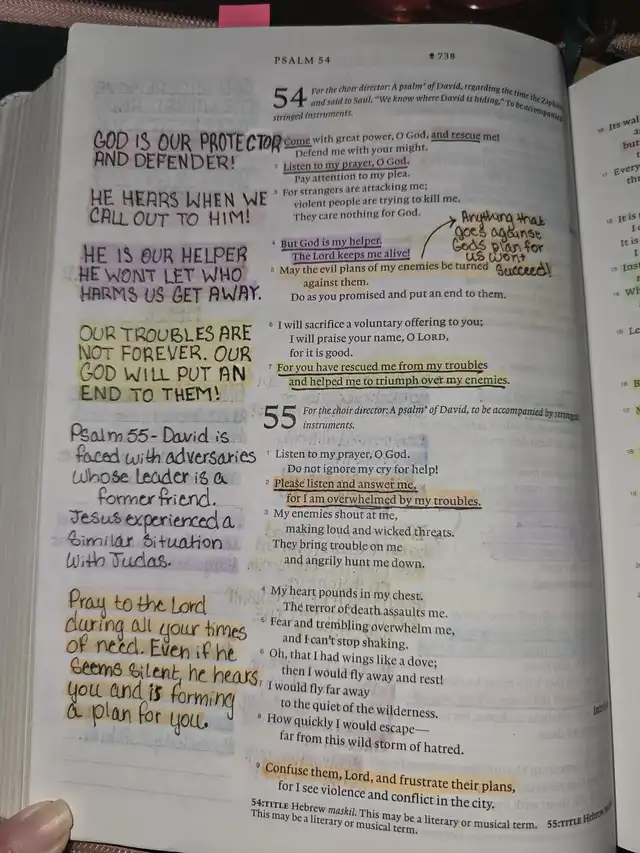 PSALM 54
738
54 For the choir director: A psalm* of David, regarding the time the
and said to Saul, "We know where David is hiding." To be accompanied
stringed instruments.
1 Come with great power, O God, and rescue me!
Defend me with your might.
2 Listen to my prayer, O God.
Pay attention to my plea.
3 For strangers are attacking me;
violent people are trying to kill me.
They care nothing for God.
4 But God is my helper.
The Lord keeps me alive!
5 May the evil plans of my enemies be turned
against them.
Do as you promised and put an end to them.
6 I will sacrifice a voluntary offering to you;
I will praise your name, O LORD,
for it is good.
7 For you have rescued me from my troubles
and helped me to triumph over my enemies.
55 For the choir director: A psalm* of David, to be accompanied by stringed
instruments.
1 Listen to my prayer, O God.
Do not ignore my cry for help!
2 Please listen and answer me,
for I am overwhelmed by my troubles.
3 My enemies shout at me,
making loud and wicked threats.
They bring trouble on me
and angrily hunt me down.
4 My heart pounds in my chest.
The terror of death assaults me.
5 Fear and trembling overwhelm me,
and I can't stop shaking.
6 Oh, that I had wings like a dove;
then I would fly away and rest!
7 I would fly far away
to the quiet of the wilderness.
8 How quickly I would escape—
far from this wild storm of hatred.
9 Confuse them, Lord, and frustrate their plans,
for I see violence and conflict in the city.
54:TITLE Hebrew maskil. This may be a literary or musical term. 55:TITLE Hebrew
This may be a literary or musical term.
GOD IS OUR PROTECTOR
AND DEFENDER!
HE HEARS WHEN WE
CALL OUT TO HIM!
HE IS OUR HELPER
HE WONT LET WHO
HARMS US GET AWAY.
OUR TROUBLES ARE
NOT FOREVER. OUR
GOD WILL PUT AN
END TO THEM!
Psalm 55- David is
faced with adversaries
whose leader is a
former friend.
Jesus experienced a
Similar Situation
with Judas.
Pray to the Lord
during all your times
of need. Even if he
Seems Silent, he hears
you and is forming
a plan for you.
Anything that
goes against
Gods plan for
us wont
Succeed!
Its wal
but
Every
It is
It is
Inst